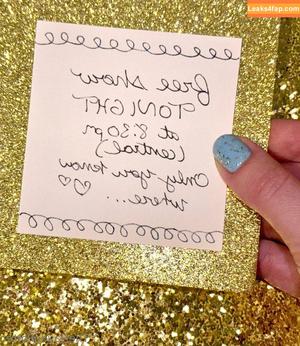 Leaks4fap.com
free show
TONIGHT
at 8:30pm
(central)
Only you know
where...